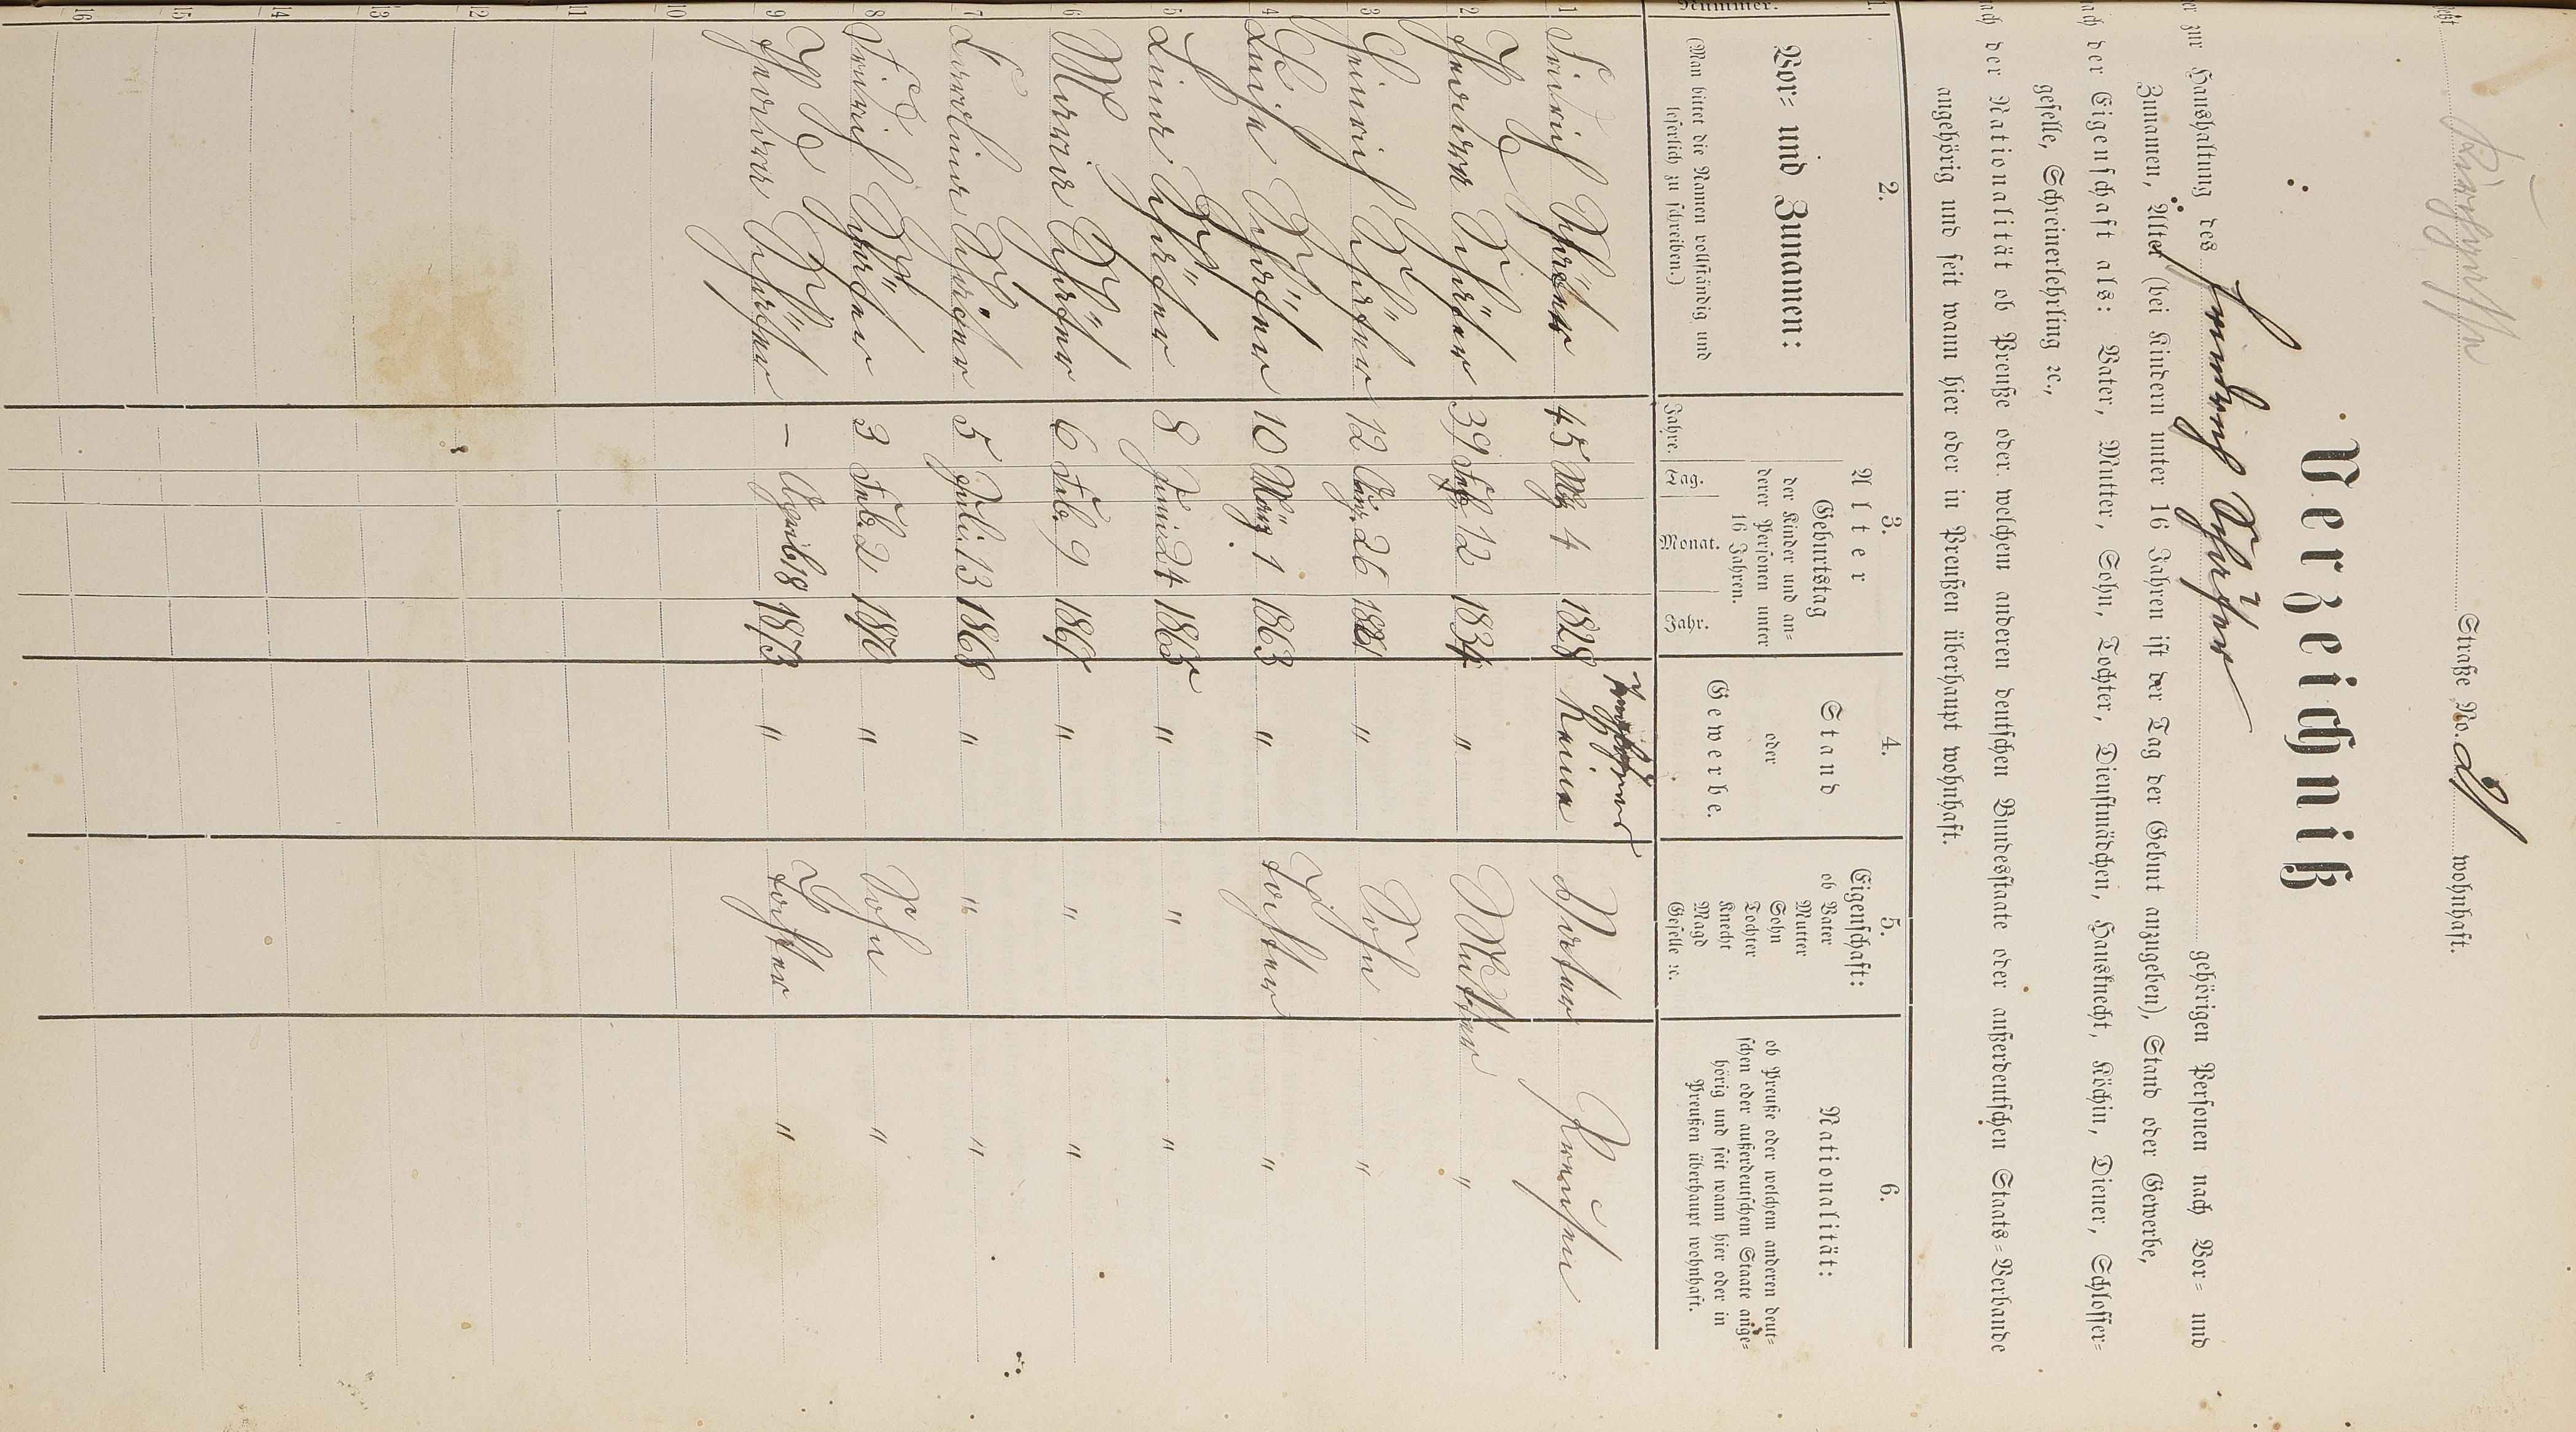 jetzt Straße No. 21 wohnhaft.
Verzeichniß
der zur Haushaltung des Friedrich Schröder gehörigen Personen nach Vor= und
Zunamen, Alter (bei Kindern unter 16 Jahren ist der Tag der Geburt anzugeben), Stand oder Gewerbe,
nach der Eigenschaft als: Vater, Mutter, Sohn, Tochter, Dienstmädchen, Hausknecht, Köchin, Diener, Schlosser=
geselle, Schreinerlehrling ꝛc.,
nach der Nationalität ob Preuße oder welchem anderen deutschen Bundesstaate oder außerdeutschen Staats=Verbande
angehörig und seit wann hier oder in Preußen überhaupt wohnhaft.
1. 2. 3. 4. 5. 6.
Nummer.
Vor= und Zunamen:
(Man bittet die Namen vollständig und
leserlich zu schreiben.)
Alter
Geburtstag
der Kinder und an=
derer Personen unter
16 Jahren.
Jahre. Tag. Monat. Jahr.
Stand
oder
Gewerbe.
Eigenschaft:
ob Vater
Mutter
Sohn
Tochter
Knecht
Magd
Geselle ꝛc.
Nationalität:
ob Preuße oder welchem anderen deut=
schen oder außerdeutschem Staate ange=
hörig und seit wann hier oder in
Preußen überhaupt wohnhaft.
1 Friedrich Schröder 45 Mz 4 1828 Keine Vater Preußen
2 Theodora Schröder 39 Feb. 12 1834 " Mutter "
3 Heinrich Schröder 12 26 1861 " Sohn "
4 Luise Schröder 10 März 1 1863 " Tochter "
5 Line Schröder 8 Juni 24 1865 " " "
6 Marie Schröder 6 Feb. 9 1867 " " "
7 Karoline Schröder 5 Juli 13 1868 " " "
8 Friedrich Schröder 3 Feb. 2 1870 " Sohn "
9 Theodora Schröder – April 18 1873 " Tochter "
10
11
12
13
14
15
16